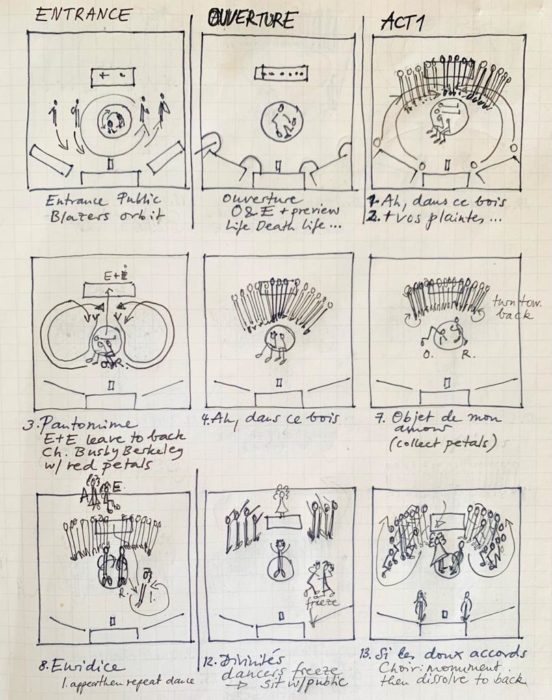 ENTRANCE
OUVERTURE
ACT1
Entrance Public
Blazers orbit
Ouverture
O&E + preview
Life Death life...
1. Ah, dans ce bois
2. + vos plaintes...
E+E
R.
turn tow.
back
O. R.
3. Pantomime
E+E leave to back
Ch. Busby Berkeley
w/ red petals
4. Ah, dans ce bois
7. Objet de mon
amour
(collect petals)
A E
R.
freeze
8. Euridice
1. appear then repeat dance
12. Divinités
dancers freeze
→ sit w/public
13. Si les doux accords
Choir: monument.
then dissolve to back